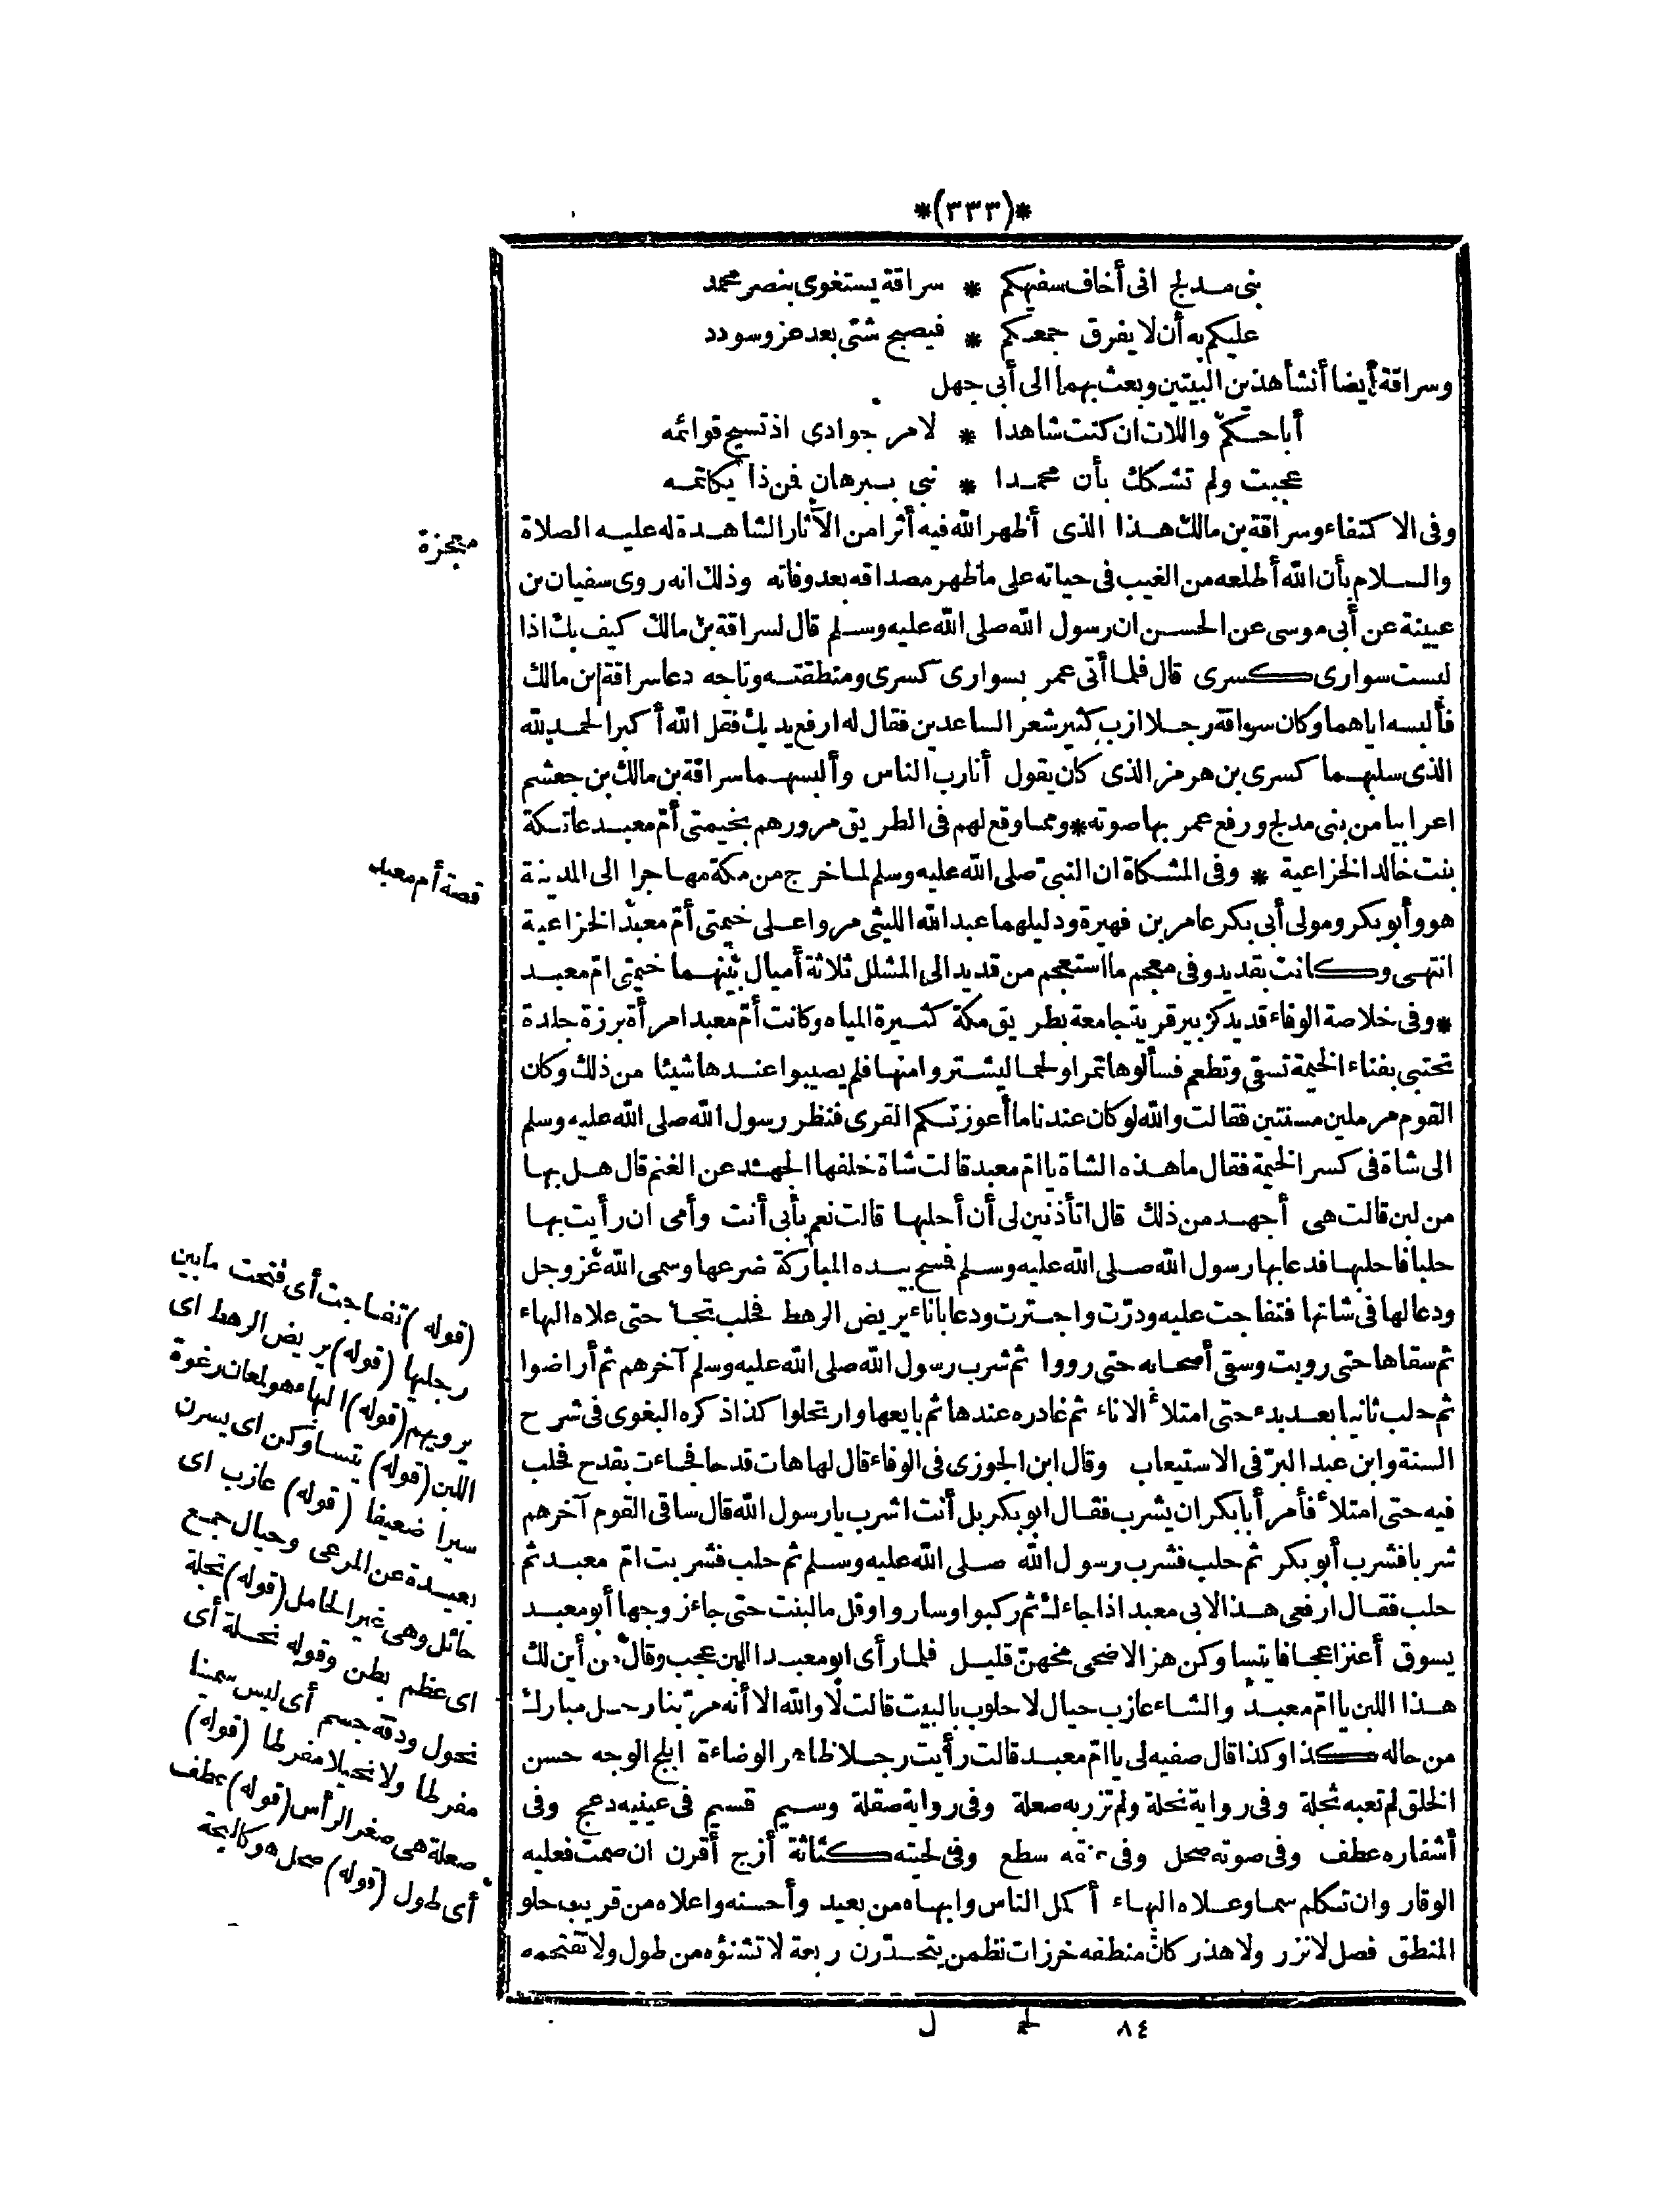 *(٣٣٣)*
بنى مدلج انى أخاف سفيهكم * سراقة يستغوى بنصر محمد
عليكم به أن لا يفرق جمعكم * فيصبح شتى بعد عز وسودد
وسراقة أيضا أنشأ هذين البيتين وبعث بهما الى أبى جهل
أبا حكم واللات ان كنت شاهدا * لامر جوادى اذ تسيخ قوائمه
عجبت ولم تشكك بأن محمدا * نبى ببرهان فمن ذا يكاتمه
وفى الاكتفاء وسراقة بن مالك هذا الذى أظهر الله فيه أثرا من الآثار الشاهدة له عليه الصلاة
والسلام بأن الله أطلعه من الغيب فى حياته على ما ظهر مصداقه بعد وفاته وذلك انه روى سفيان بن
عيينة عن أبى موسى عن الحسن ان رسول الله صلى الله عليه وسلم قال لسراقة بن مالك كيف بك اذا
لبست سوارى كسرى قال فلما أتى عمر بسوارى كسرى ومنطقته وتاجه دعا سراقة بن مالك
فألبسه اياهما وكان سراقة رجلا ازب كثير شعر الساعدين فقال له ارفع يديك فقل الله أكبر الحمد لله
الذى سلبهما كسرى بن هرمز الذى كان يقول أنا رب الناس وألبسهما سراقة بن مالك بن جعشم
اعرابيا من بنى مدلج ورفع عمر بها صوته * ومما وقع لهم فى الطريق مرورهم بخيمتى أمّ معبد عاتكة
بنت خالد الخزاعية * وفى المشكاة ان النبىّ صلى الله عليه وسلم لما خرج من مكة مهاجرا الى المدينة
هو وأبو بكر ومولى أبى بكر عامر بن فهيرة ودليلهما عبد الله الليثى مروا على خيمتى أمّ معبد الخزاعية
انتهى وكانت بقديد وفى معجم ما استعجم من قديد الى المشلل ثلاثة أميال بينهما خيمتى امّ معبد
* وفى خلاصة الوفاء قديد كزبير قرية جامعة بطريق مكة كثيرة المياه وكانت أمّ معبد امرأة برزة جلدة
تحتبى بفناء الخيمة تسقى وتطعم فسألوها تمرا ولحما ليشتروا منها فلم يصيبوا عندها شيئا من ذلك وكان
القوم مرملين مسنتين فقالت والله لو كان عندنا ما أعوزتكم القرى فنظر رسول الله صلى الله عليه وسلم
الى شاة فى كسر الخيمة فقال ما هذه الشاة يا امّ معبد قالت شاة خلفها الجهد عن الغنم قال هل بها
من لبن قالت هى أجهد من ذلك قال اتأذنين لى أن أحلبها قالت نعم بأبى أنت وأمى ان رأيت بها
حلبا فاحلبها فدعا بها رسول الله صلى الله عليه وسلم فمسح بيده المباركة ضرعها وسمى الله عز وجل
ودعا لها فى شاتها فتفاجت عليه ودرّت واجترت ودعا باناء يريض الرهط فحلب ثجا حتى علاه البهاء
ثم سقاها حتى رويت وسقى أصحابه حتى رووا ثم شرب رسول الله صلى الله عليه وسلم آخرهم ثم أراضوا
ثم حلب ثانيا بعد بدء حتى امتلأ الاناء ثم غادره عندها ثم بايعها وارتحلوا كذا ذكره البغوى فى شرح
السنة وابن عبد البرّ فى الاستيعاب وقال ابن الجوزى فى الوفاء قال لها هات قدحا فجاءت بقدح فحلب
فيه حتى امتلأ فأمر أبا بكر ان يشرب فقال ابو بكر بل أنت اشرب يا رسول الله قال ساقى القوم آخرهم
شربا فشرب أبو بكر ثم حلب فشرب رسول الله صلى الله عليه وسلم ثم حلب فشربت امّ معبد ثم
حلب فقال ارفعى هذا لابى معبد اذا جاءك ثم ركبوا وساروا وقل ما لبثت حتى جاء زوجها أبو معبد
يسوق أعنزا عجافا يتساوكن هزالا ضحى مخهنّ قليل فلما رأى ابو معبد اللبن عجب وقال من أين لك
هذا اللبن يا امّ معبد والشاء عازب حيال لا حلوب بالبيت قالت لا والله الا أنه مرّ بنا رجل مبارك
من حاله كذا وكذا قال صفيه لى يا امّ معبد قالت رأيت رجلا ظاهر الوضاءة ابلج الوجه حسن
الخلق لم تعبه ثجلة وفى رواية نحلة ولم تزر به صعلة وفى رواية صقلة وسيم قسيم فى عينيه دعج وفى
أشفاره عطف وفى صوته صحل وفى عنقه سطع وفى لحيته كثاثة أزج أقرن ان صمت فعليه
الوقار وان تكلم سما وعلاه البهاء أكمل الناس وابهاه من بعيد وأحسنه واعلاه من قريب حلو
المنطق فصل لا نزر ولا هذر كانّ منطقه خرزات نظمن يتحدّرن ربعة لا تشنؤه من طول ولا تقتحمه
٨٤ خ ل
معجزة
قصة أم معبد
(قوله) تفاجت أى فتحت ما بين
رجليها (قوله) يريض الرهط اى
يرويهم (قوله) البهاء هو لمعان رغوة
اللبن (قوله) يتساوكن اى يسرن
سيرا ضعيفا (قوله) عازب اى
بعيدة عن المرعى وحيال جمع
حائل وهى غير الحامل (قوله) ثجلة
اى عظم بطن وقوله نحلة أى
نحول ودقة جسم أى ليس سمينا
مفرطا ولا نحيلا مفرطا (قوله)
صعلة هى صغر الرأس (قوله) عطف
أى طول (قوله) صحل هو كالبحة